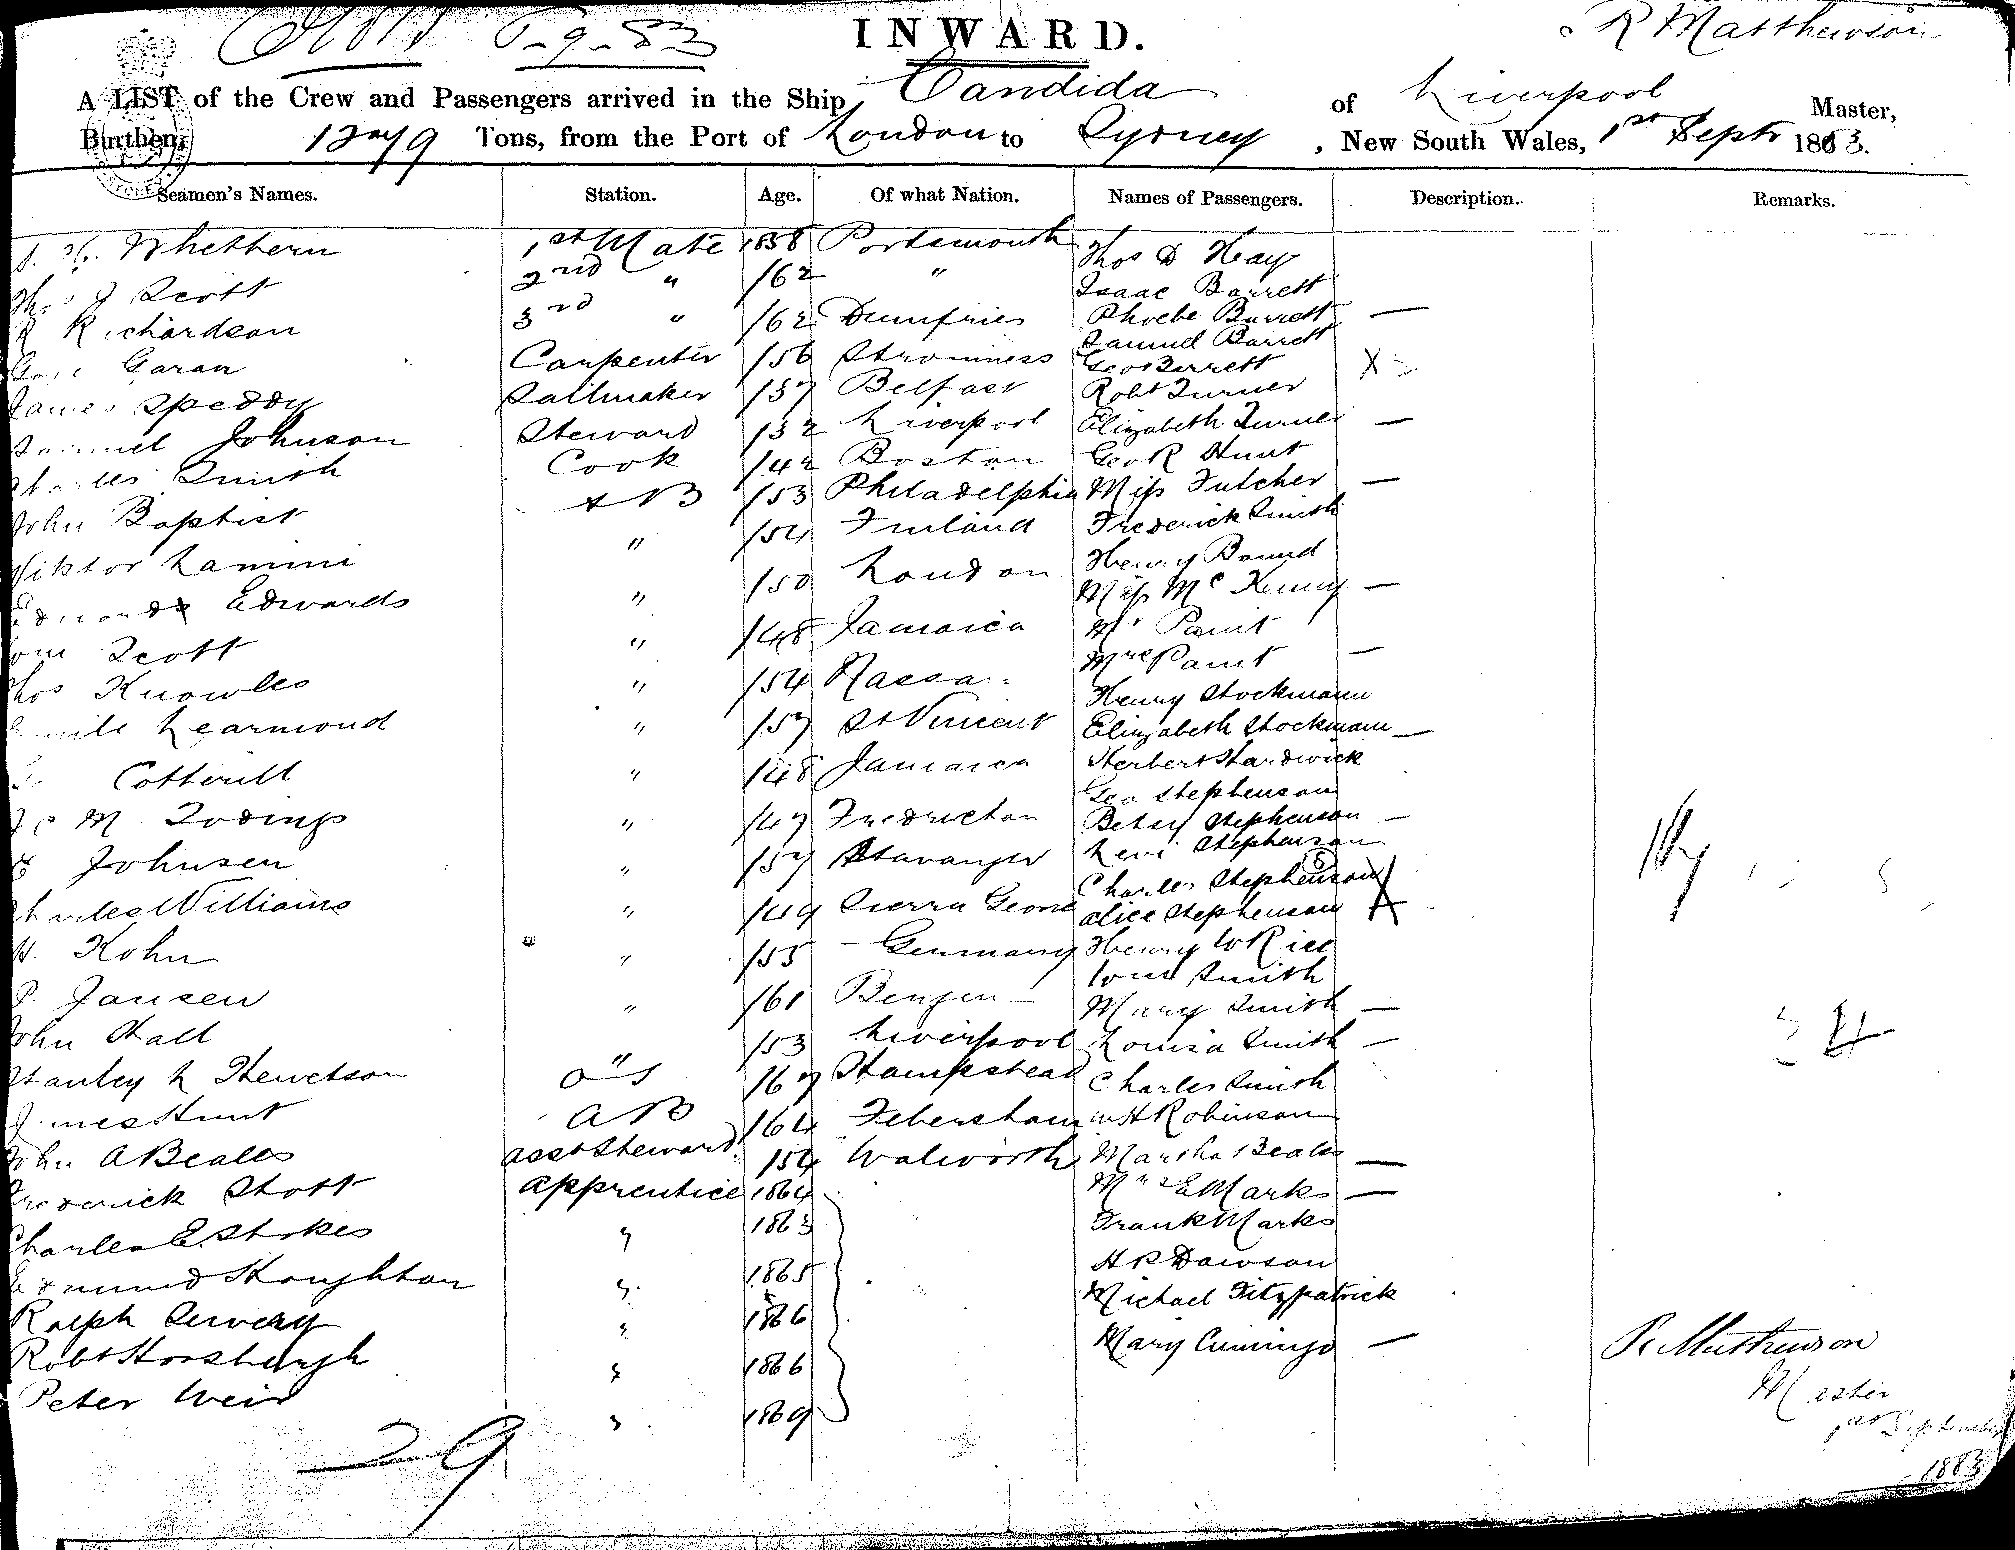 INWARD.
R Matthewson
1-9-83
A LIST of the Crew and Passengers arrived in the Ship Candida of Liverpool Master,
Burthen, Tons, from the Port of London to Sydney, New South Wales, 1st Septr 1883.
Seamen's Names. Station. Age. Of what Nation. Names of Passengers. Description. Remarks.
Whethern 1st Mate 1858 Portsmouth Thos D Hay
Thos J Scott 2nd " /62 " Isaac Barrett
R Richardson 3rd " /62 Dumfries Phoebe Barrett —
Samuel Barrett
Garan Carpenter /56 Stromness Geo Barrett
James Speddy Sailmaker /37 Belfast Robt Turner
Samuel Johnson Steward /32 Liverpool Elizabeth Turner —
Charles Smith Cook /42 Boston Geo R Hunt
John Baptist AB /53 Philadelphia Miss Futcher —
Viktor Lamini " /54 Finland Frederick Smith
Edwards " /50 London Henry Bound
Miss McKenny —
Tom Scott " /48 Jamaica Mr Pamt
Thos Knowles " /54 Nassa Mrs Pamt —
Henry Stockmann
Learmond " /57 St Vincent Elizabeth Stockmann —
Cotterill " /48 Jamaica Herbert Hardwick
Geo Stephenson
M " /47 Fredricton Betsy Stephenson —
Johnsen " /57 Stavanger Levi Stephenson
Charles Stephenson
Charles Williams " /49 Sierra Leone Alice Stephenson
H. Kohn " /55 Germany Henry W Rice
Tom Smith
P. Jansen " /61 Bergen Mary Smith —
John Hall " /53 Liverpool Louisa Smith —
Stanley L Hewetson OS /67 Hampstead Charles Smith
James Hunt AB /64 Febersham W H Robinson
John A Beales asst Steward /54 Walworth Martha Beales —
Frederick Stott apprentice 1864 Mrs E Marks —
Charles E. Stokes " 1863 Frank Marks
Edmund Houghton " 1865 H R Dawson
Ralph " 1866 Michael Fitzpatrick
Robt Horsburgh " 1866 Mary Cumings —
Peter Weir " 1869
29
R Matthewson
Master
1st September
1883